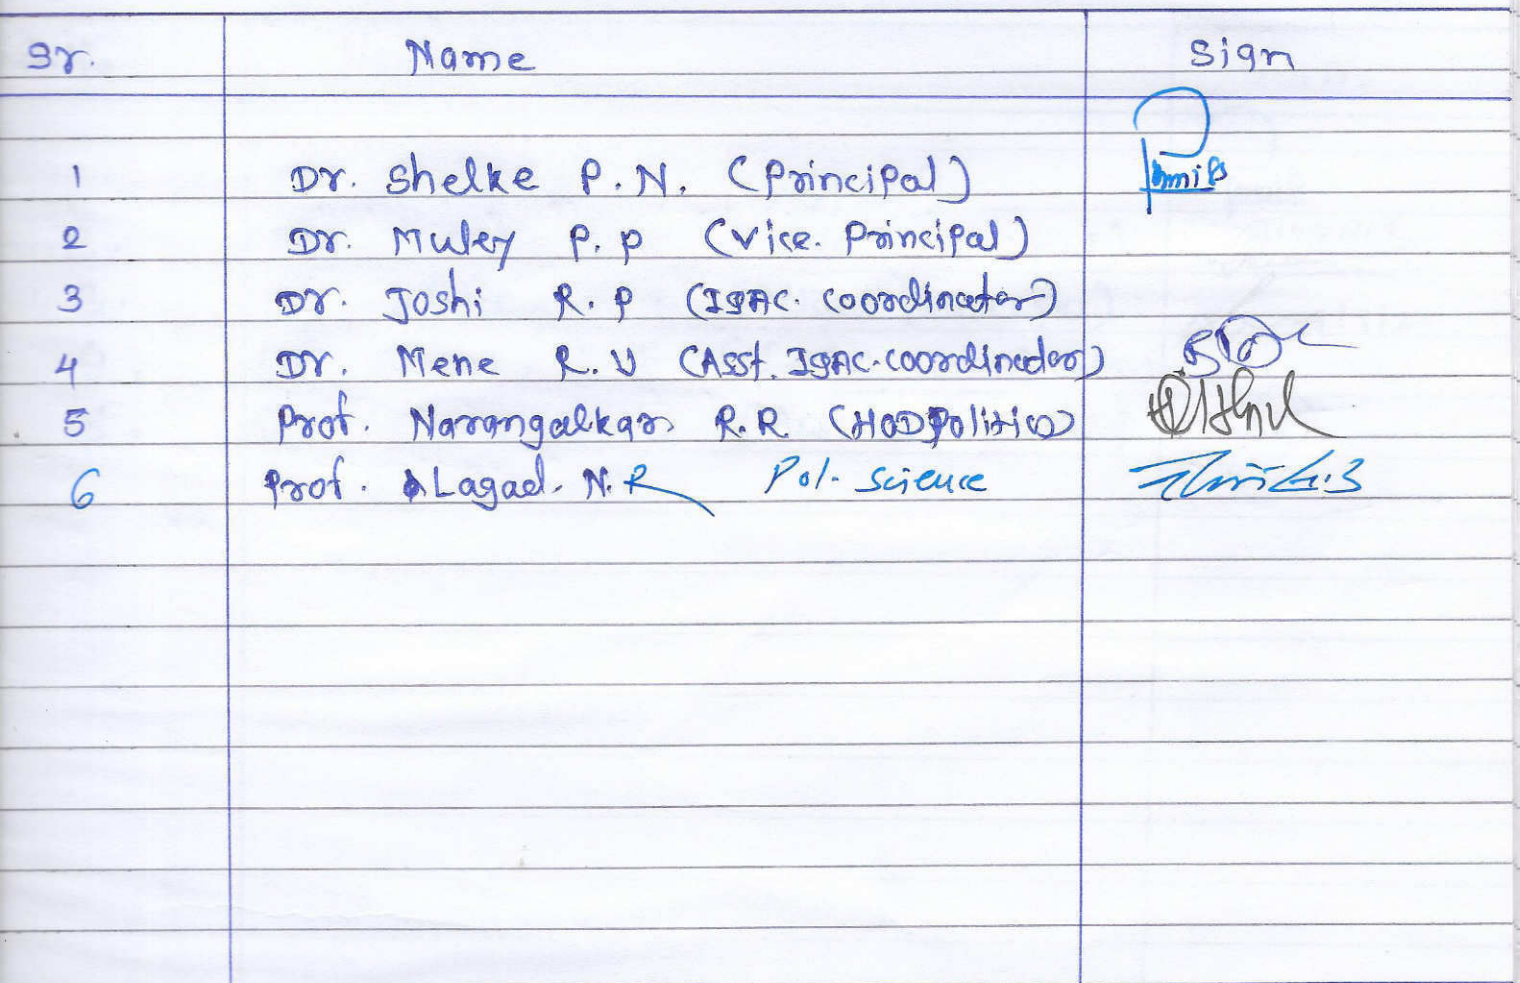 Sr. Name Sign
1 Dr. Shelke P.N. (Principal)
2 Dr. Muley P.P (Vice. Principal)
3 Dr. Joshi R.P (IQAC. Coordinator)
4 Dr. Mene R.V (Asst. IQAC. Coordinator)
5 Prof. Narangalkar R.R. (HOD Politics)
6 Prof. Lagad. N.R Pol. Science